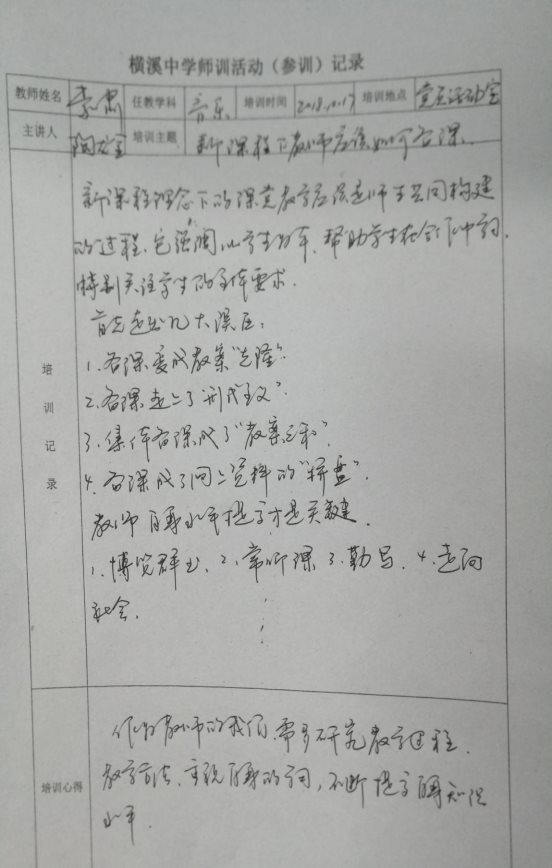 横溪中学师训活动（参训）记录
教师姓名 李肃 任教学科 音乐 培训时间 2018.10.17 培训地点 党员活动室
主讲人 培训主题 新课程下教师应该如何备课.
培训记录
新课程理念下的课堂教学应该是师生共同构建
的过程.它强调以学生为本.帮助学生在合作中
特别关注学生的全体要求.
首先走出几大误区:
1.备课变成教案"克隆".
2.备课走上了"形式主义".
3.集体备课成了"教案之和".
4.备课成了网上资料的"拼盘".
教师自身水平提高才是关键.
1.博览群书、2.常听课 3.勤写、4.走向
社会.
培训心得
作为教师的我们,需多研究教学过程.
教学方法.重视自身的学习,不断提高自身知识
水平.